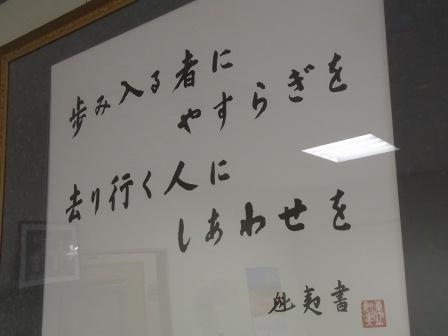 歩み入る者に
やすらぎを
去り行く人に
しあわせを
魁夷書